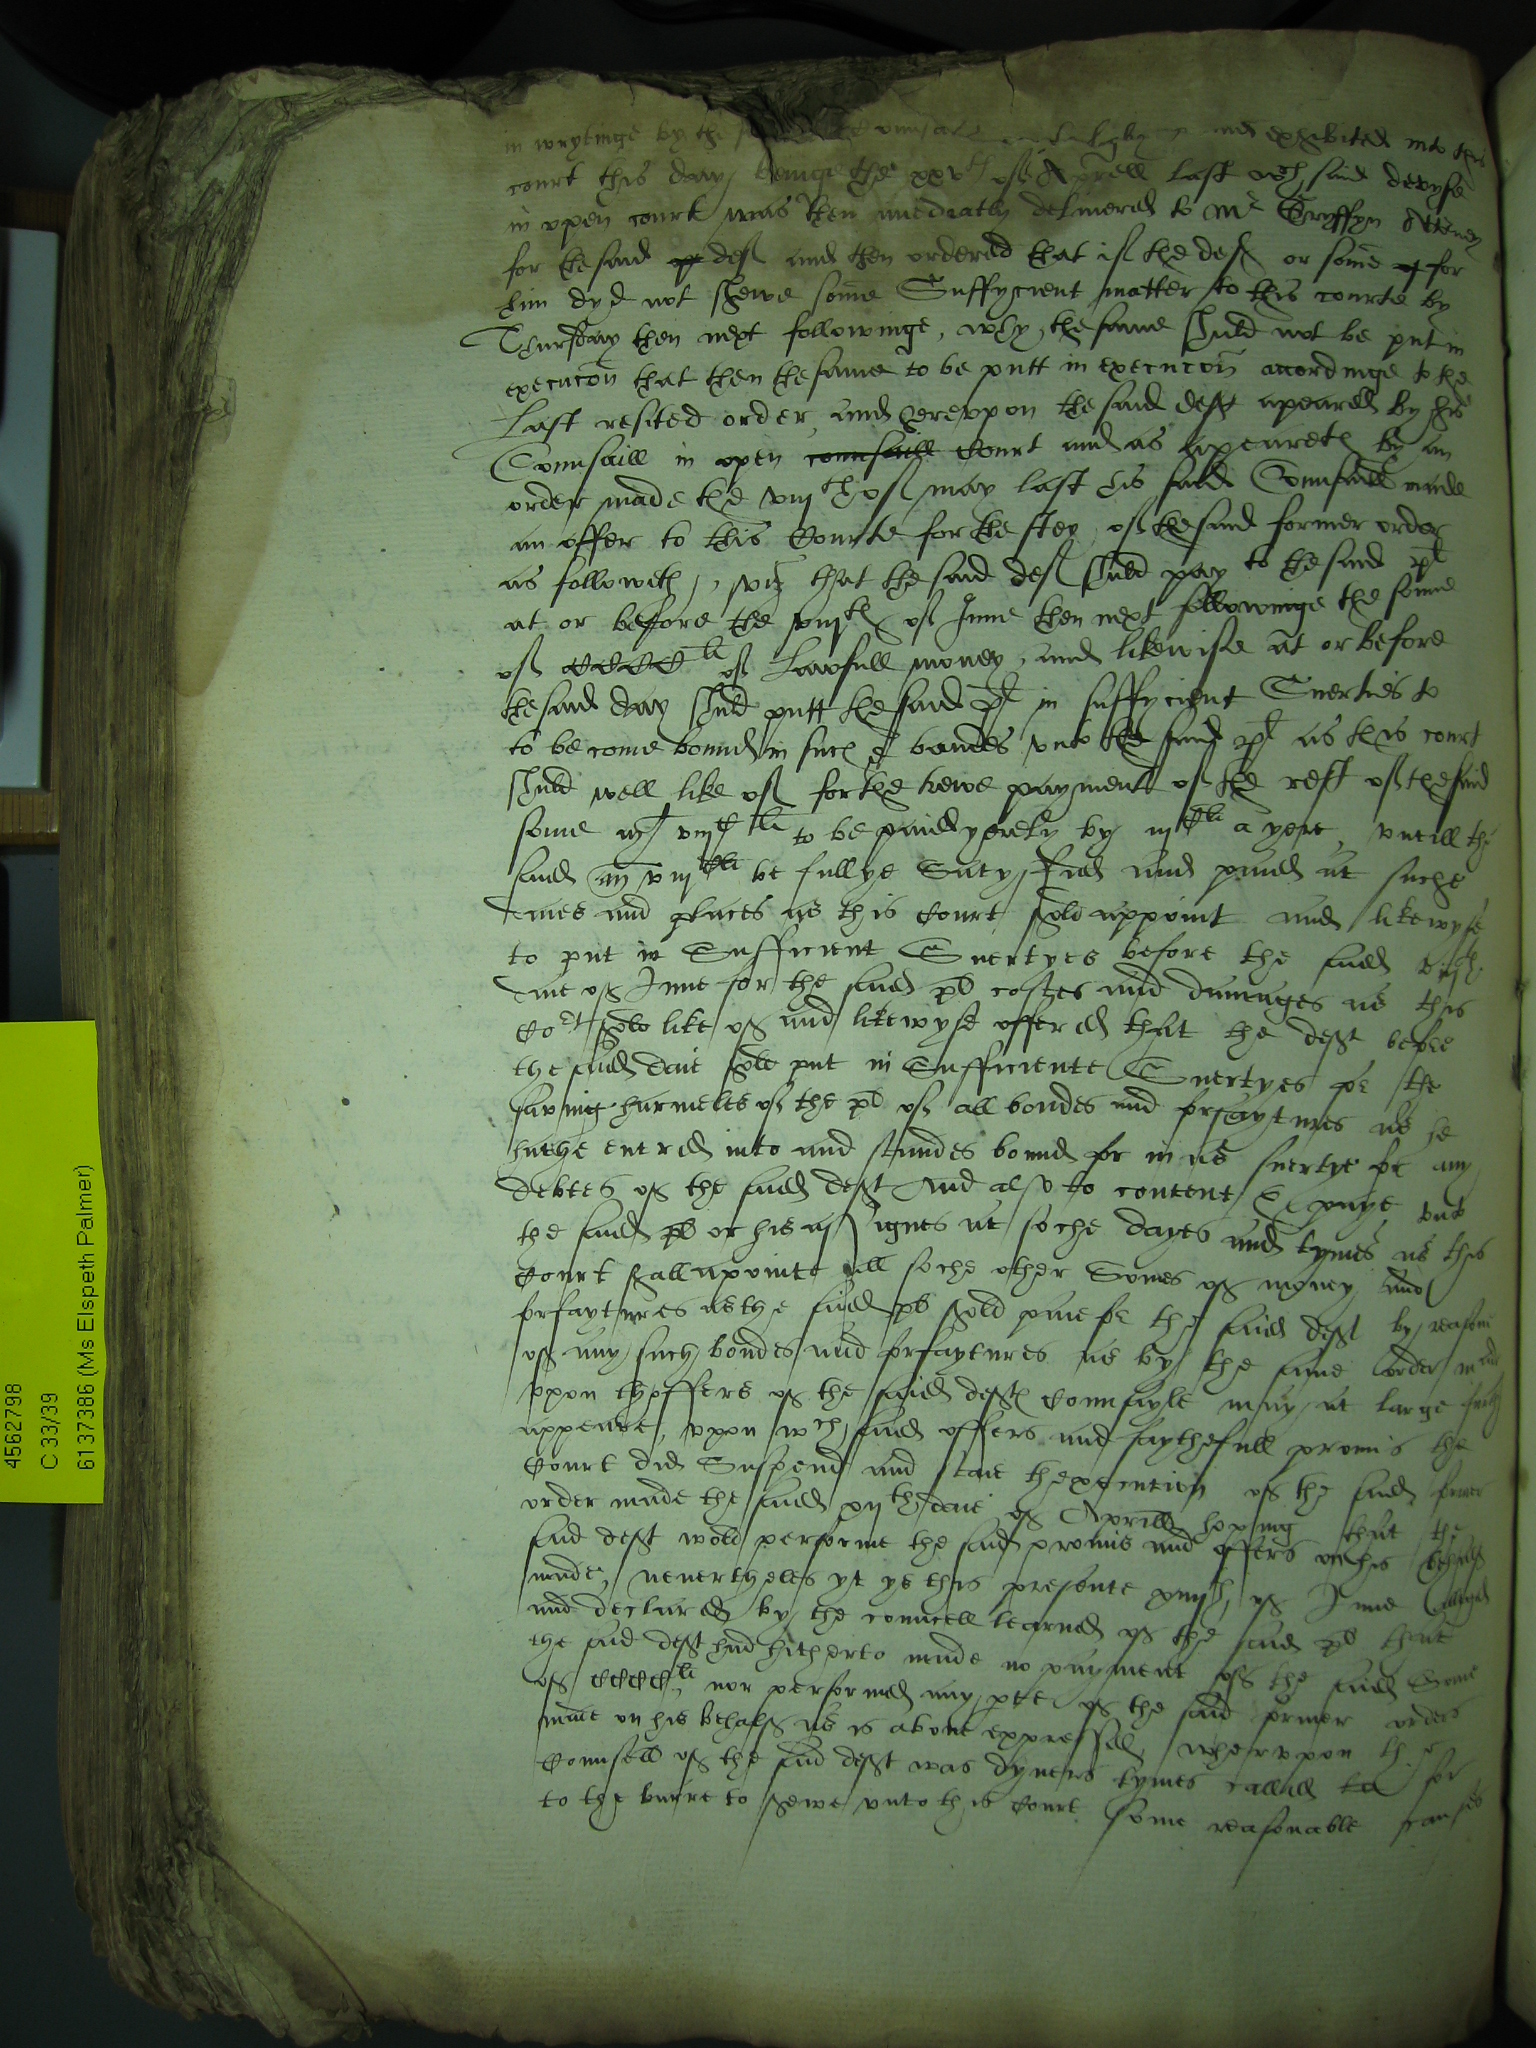 in wrytinge by the exhibited into this
court this day beinge the xxvth of Aprell last wch said devyse
in open court was then imediatly delivered to Mr Gryffyn Atterney
for the said def and then ordered that if the def or some for
him dyd not shewe some Suffycient matter to this courte by
Thursday then next followinge, why the same shuld not be put in
execucon that then the same to be putt in execucon accordinge to the
last resited order, and herevpon the said deft apeared by his
Counsaill in open counsaill Court and as apeareth by an
order made the viijth of may last his said Counsaill made
an offer to this Courte for the stey of the said former order
as followeth, viz that the said def shuld pay to the said pl
at or before the xviijth of June then next followinge the some
of CCCCli of Lawfull money, and likewise at or before
the said day shuld putt the said pl in suffycient Suerties to
to be come bound in such bandes vnto the said pl as this court
shuld well like of for the trewe payment of the rest of the said
some to be paied yerely by a yere, vntill the
said be fullye Satysfied and paied at suche
times and places as this Court shold appoint and likewyse
to put in Sufficient Suertyes before the said
June for the said pl costes and damages as this
Cort shold like of and likewyse offered that the deft before
the said daie shold put in Sufficiente Suertyes for the
saving harmeles of the pl of all bondes and forfaytures as he
hathe entred into and standes bound for in as suertye for any
debtes of the said deft And also to content & paye vnto
the said pl or his assignes at soche dayes and tymes as this
Court shall apointe all soche other Somes of money And
forfaytures as the said pl shold paie for the said deft by reason
of any such bondes and forfaytures as by the same order made
vpon thoffers of the said deftes Counsayle may at large
appeare, vpon wch said offers and faythefull promis the
Court did Suspend and staie thexecution of the said former
order made the said xijth daie of Aprill hoping that the
said deft wold performe the said promis and offers on his behalf
made, neuertheles yt ys this presente of June alleged
and declared by the councell learned of the said pl that
the said deft had hitherto made no payment of the said Some
of CCCCli nor performed any parte of the said former orders
made on his behalf as is aboue expressed, whervpon the
Counsell of the said deft was dyuers tymes called for
to the barre to shewe vnto this Court some reasonable causes
4562798
C 33/39
6137386 (Ms Elspeth Palmer)